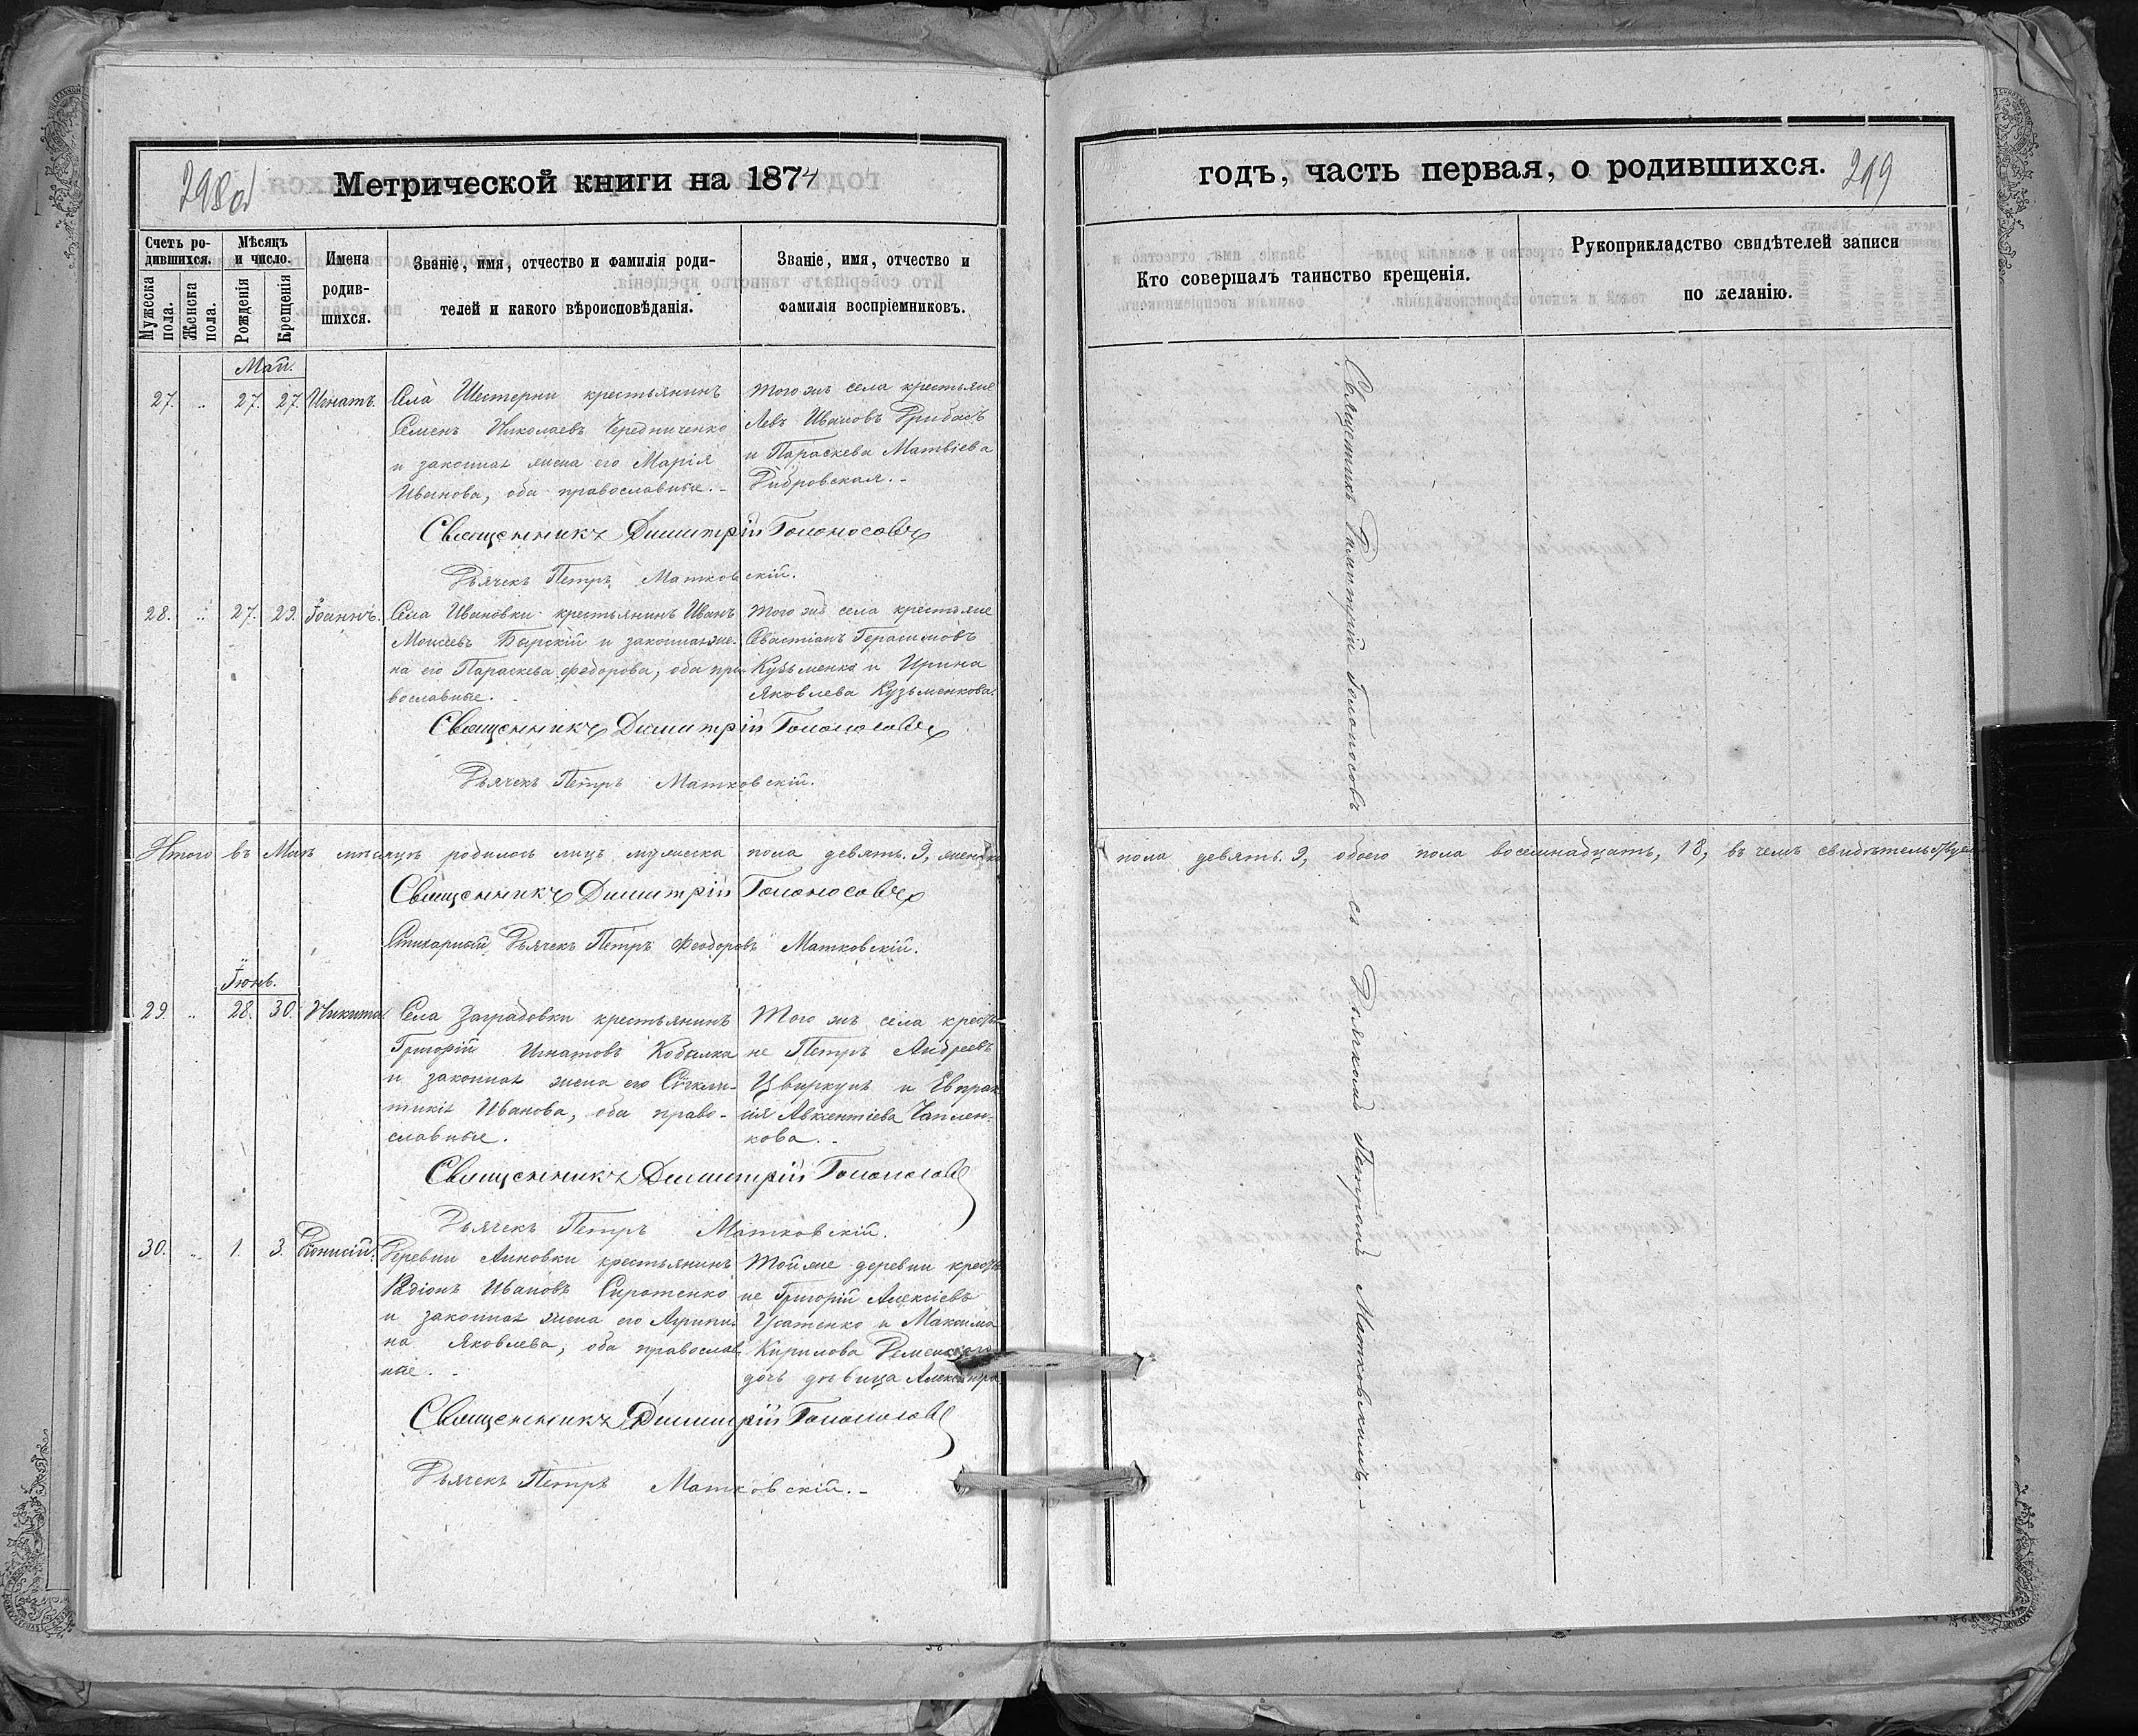 298 об
Метрической книги на 1874
Счетъ ро-
дившихся.
Мужеска
пола.
Женска
пола.
Мѣсяцъ
и число.
Рожденія
Крещенія
Имена
родив-
шихся.
Званіе, имя, отчество и фамилія роди-
телей и какого вѣроисповѣданія.
Званіе, имя, отчество и
фамилія воспріемниковъ.
Май.
27. „ 27. 27. Игнатъ.
Села Шестерни крестьянинъ
Семенъ Николаевъ Чередниченко
и законная жена его Марія
Иванова, оба православные.-
Того же села крестьяне
Левъ Ивановъ Грибасъ
и Параскева Матвіева
Дибровская.-
Священникъ Димитрій Голоносовъ
Дьячекъ Петръ Матковскій.
28. „ 27. 29. Іоаннъ.
Села Ивановки крестьянинъ Иванъ
Моисеевъ Барскій и законная же-
на его Параскева Федорова, оба пра-
вославные.
Того же села крестьяне
Севастіанъ Герасимовъ
Кузьменко и Ирина
Яковлева Кузьменкова.
Священникъ Димитрій Голоносовъ
Дьячекъ Петръ Матковскій.
Итого въ Маѣ мѣсяцѣ родилось лицъ мужеска пола девять. 9, женска
Священникъ Димитрій Голоносовъ
Стихарный Дьячекъ Петръ Феодоровъ Матковскій.
Іюнь.
29. „ 28. 30. Никита.
Села Заградовки крестьянинъ
Григорій Игнатовъ Кобылка
и законная жена его Сѵнкли-
тикія Иванова, оба право-
славные.
Того же села крестья
не Петръ Андреевъ
Цвиркунъ и Евпрак
сія Авксентіева Чаплен-
кова.-
Священникъ Димитрій Голоносовъ
Дьячекъ Петръ Матковскій.
30. „ 1. 3. Діонисій.
Деревни Анновки крестьянинъ
Родіонъ Ивановъ Сиротенко
и законная жена его Агрипи-
на Яковлева, оба православ
ные.-
Той же деревни крестья
не Григорій Алексіевъ
Усатенко и Максима
Кирилова Ременского
дочь дѣвица Александра.
Священникъ Димитрій Голоносовъ
Дьячекъ Петръ Матковскій.-
годъ, часть первая, о родившихся.
299
Кто совершалъ таинство крещенія.
Рукоприкладство свидѣтелей записи
по желанію.
Священникъ Димитрій Голоносовъ съ Дьячкомъ Петромъ Матковскимъ.-
пола девять. 9, обоего пола восемнадцать, 18, въ чемъ свидѣтельствуемъ